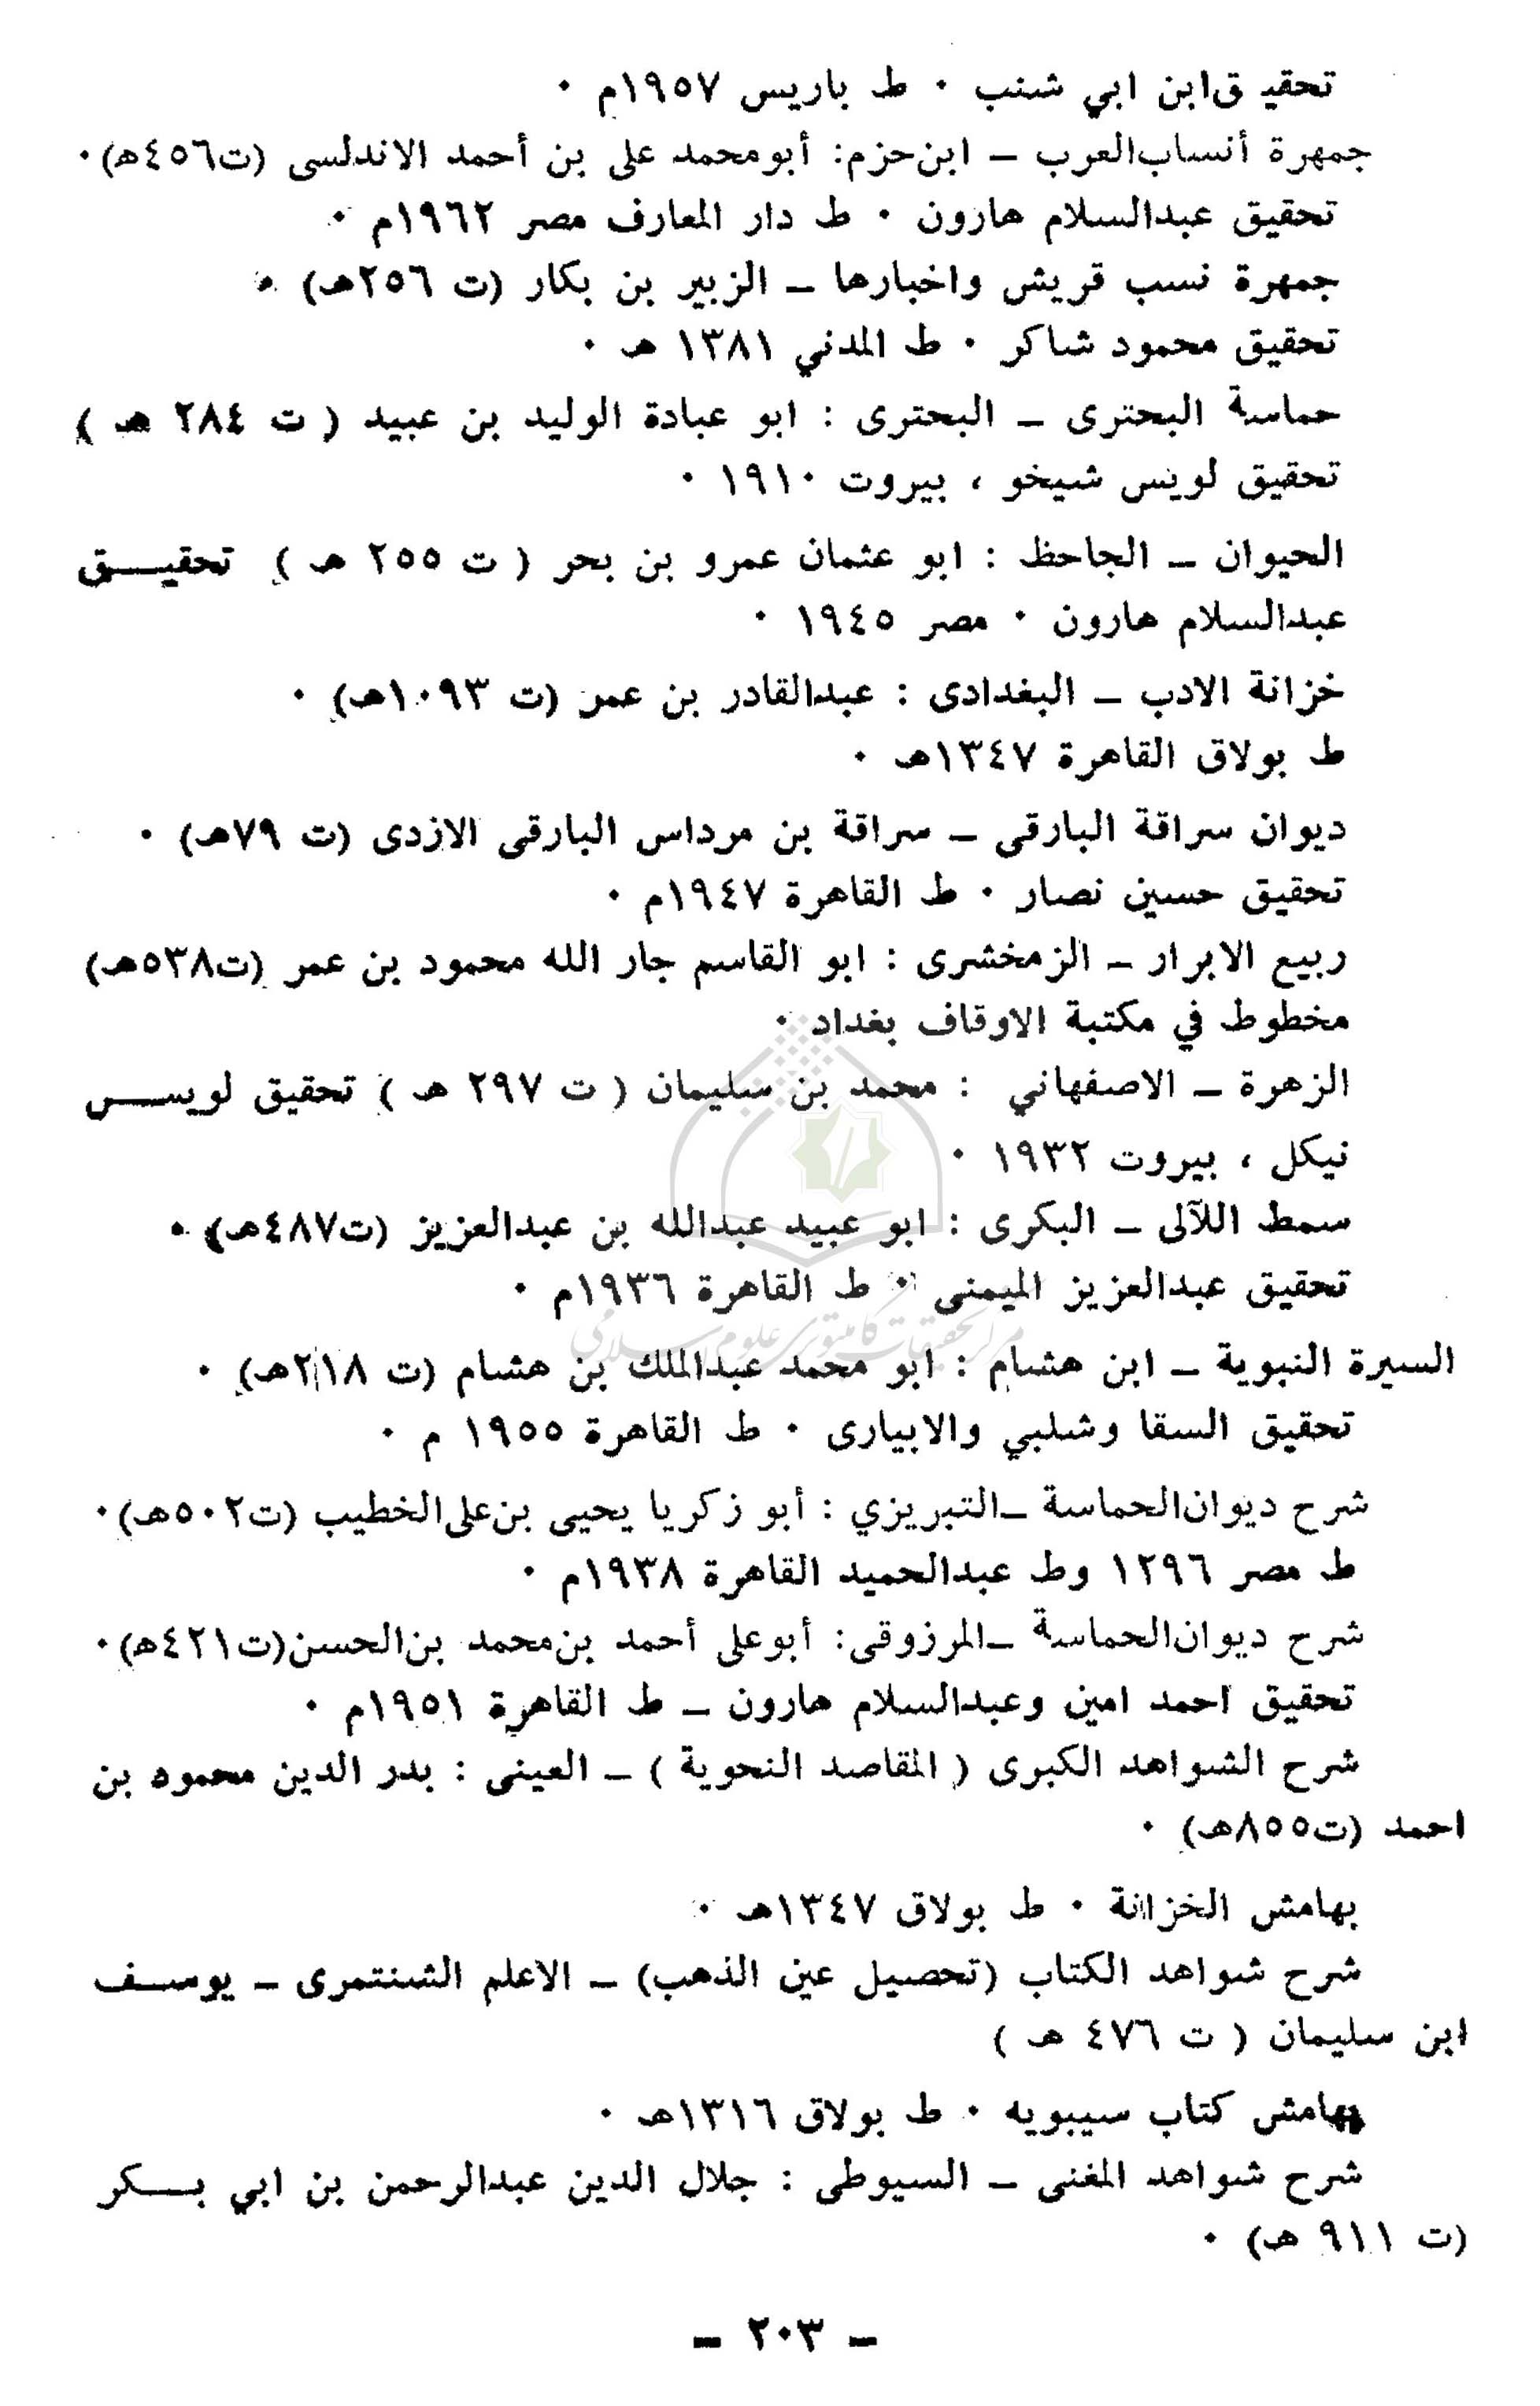 تحقيـ ق ابن ابي شنب ٠ ط باريس ١٩٥٧م ٠
جمهرة أنساب العرب – ابن حزم: أبو محمد على بن أحمد الاندلسى (ت٤٥٦ه)٠
تحقيق عبدالسلام هارون ٠ ط دار المعارف مصر ١٩٦٢م ٠
جمهرة نسب قريش واخبارها – الزبير بن بكار (ت ٢٥٦هـ) ٠
تحقيق محمود شاكر ٠ ط المدني ١٣٨١ هـ ٠
حماسة البحترى – البحترى : ابو عبادة الوليد بن عبيد ( ت ٢٨٤ هـ )
تحقيق لويس شيخو ، بيروت ١٩١٠ ٠
الحيوان – الجاحظ : ابو عثمان عمرو بن بحر ( ت ٢٥٥ هـ ) تحقيــق
عبدالسلام هارون ٠ مصر ١٩٤٥ ٠
خزانة الادب – البغدادى : عبدالقادر بن عمر (ت ١٠٩٣هـ) ٠
ط بولاق القاهرة ١٣٤٧هـ ٠
ديوان سراقة البارقى – سراقة بن مرداس البارقى الازدى (ت ٧٩هـ) ٠
تحقيق حسين نصار ٠ ط القاهرة ١٩٤٧م ٠
ربيع الابرار – الزمخشرى : ابو القاسم جار الله محمود بن عمر (ت٥٣٨هـ)
مخطوط في مكتبة الاوقاف بغداد ٠
الزهرة – الاصفهاني : محمد بن سليمان ( ت ٢٩٧ هـ ) تحقيق لويــس
نيكل ، بيروت ١٩٣٢ ٠
سمط اللآلى – البكرى : ابو عبيد عبدالله بن عبدالعزيز (ت٤٨٧هـ) ٠
تحقيق عبدالعزيز الميمنى ٠ ط القاهرة ١٩٣٦م ٠
مركز تحقيقات كامپيوتري علوم اسلامي
السيرة النبوية – ابن هشام : ابو محمد عبدالملك بن هشام (ت ٢١٨هـ) ٠
تحقيق السقا وشلبي والابيارى ٠ ط القاهرة ١٩٥٥ م ٠
شرح ديوان الحماسة –التبريزي : أبو زكريا يحيى بن على الخطيب (ت٥٠٢هـ)٠
ط مصر ١٢٩٦ وط عبدالحميد القاهرة ١٩٣٨م ٠
شرح ديوان الحماسة –المرزوقى: أبوعلى أحمد بن محمد بن الحسن(ت٤٢١ه)٠
تحقيق احمد امين وعبدالسلام هارون – ط القاهرة ١٩٥١م ٠
شرح الشواهد الكبرى ( المقاصد النحوية ) – العينى : بدر الدين محمود بن
احمد (ت٨٥٥هـ) ٠
بهامش الخزانة ٠ ط بولاق ١٣٤٧هـ ٠
شرح شواهد الكتاب (تحصيل عين الذهب) – الاعلم الشنتمرى – يوســف
ابن سليمان ( ت ٤٧٦ هـ )
بهامش كتاب سيبويه ٠ ط بولاق ١٣١٦هـ ٠
شرح شواهد المغنى – السيوطى : جلال الدين عبدالرحمن بن ابي بــكر
(ت ٩١١ هـ) ٠
– ٢٠٣ –